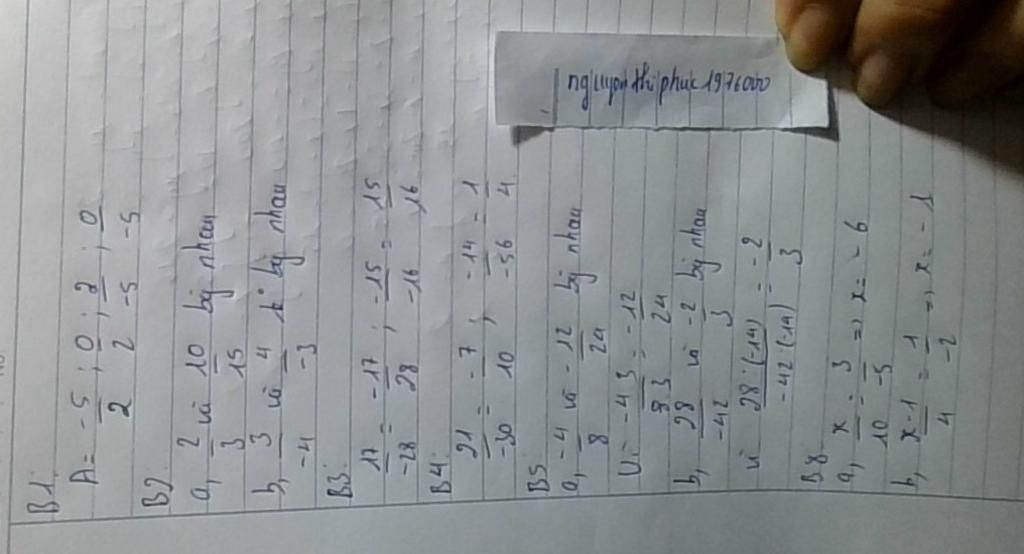 B1.
A = -5/2 ; 0/2 ; 2/-5 ; 0/-5
B2
a, 2/3 và 10/15 bằng nhau
b, 3/-4 và 4/-3 k° bằng nhau
B3:
17/-28 = -17/28 ; -15/-16 = 15/16
B4:
21/-30 = -7/10 ; -14/-56 = 1/4
B5
a, -4/8 và -12/24 bằng nhau
Vì -4.3/8.3 = -12/24
b, 28/-42 và -2/3 bằng nhau
vì 28:(-14)/-42:(-14) = -2/3
B8
a, x/10 = 3/-5 => x = -6
b, x-1/4 = 1/-2 => x = -1
nguyen thi phuc 1976000